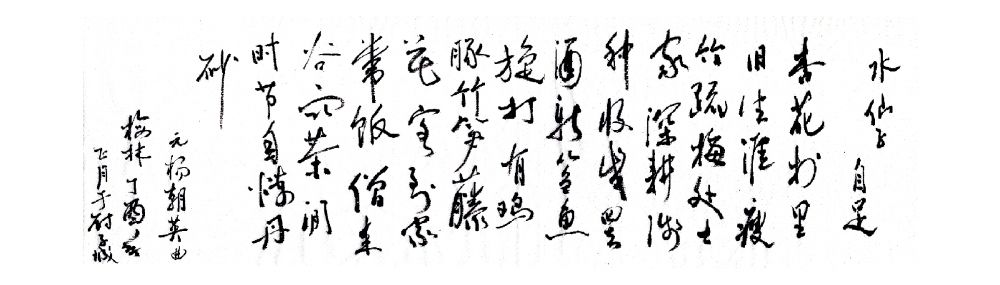 水仙子 自足
杏花村里
旧生涯瘦
竹疏梅处士
家深耕浅
种收成罢
酒新篘鱼
旋打有鸡
豚竹笋藤
花客到家
常饭僧来
谷雨茶闲
时节自炼丹
砂
元杨朝英曲
榆林丁酉
正月于